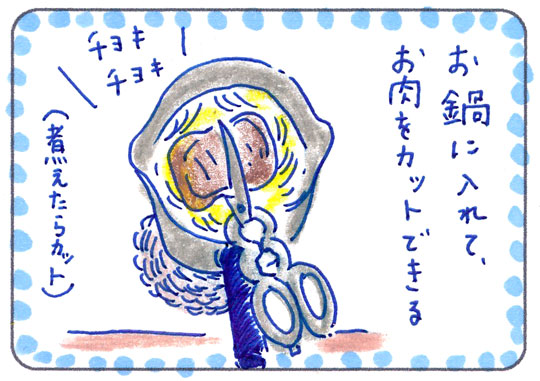 お鍋に入れて、
お肉をカットできる
チョキ
チョキ
(煮えたらカット)